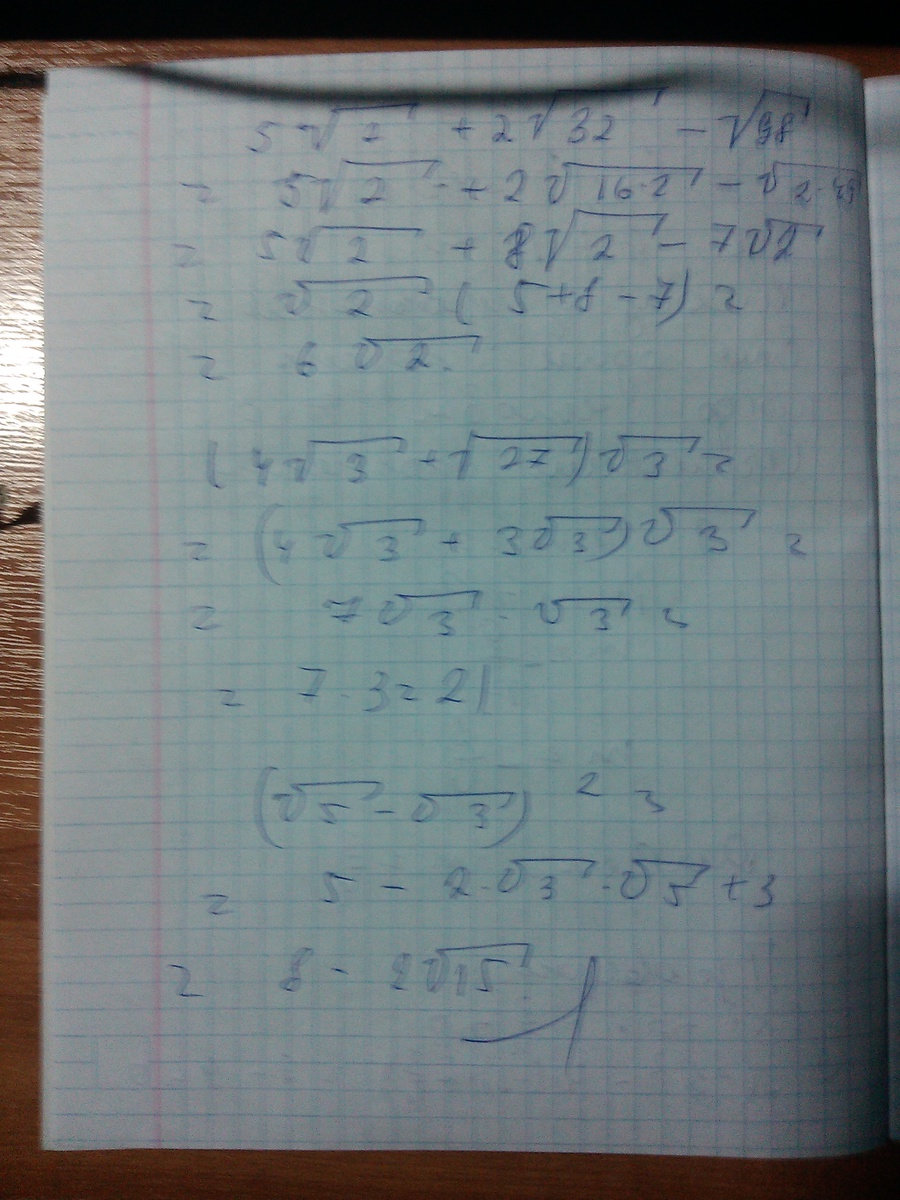 5√2 + 2√32 − √98
= 5√2 + 2√16·2 − √2·49
= 5√2 + 8√2 − 7√2
= √2 (5+8−7) =
= 6√2
(4√3 + √27)√3 =
= (4√3 + 3√3)√3 =
= 7√3 · √3 =
= 7·3=21
(√5 − √3)² =
= 5 − 2·√3·√5 + 3
= 8 − 2√15